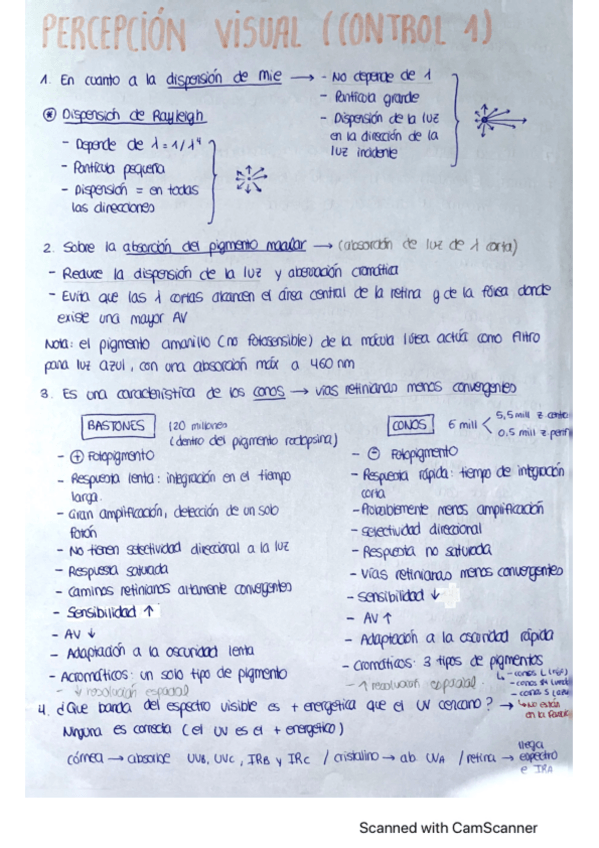 PERCEPCIÓN VISUAL (CONTROL 1)
1. En cuanto a la dispersión de Mie → - No depende de λ
- Partícula grande
- Dispersión de la luz
en la dirección de la
luz incidente
* Dispersión de Rayleigh
- Depende de λ = 1/λ⁴
- Partícula pequeña
- Dispersión = en todas
las direcciones
2. Sobre la absorción del pigmento macular → (absorción de luz de λ corta)
- Reduce la dispersión de la luz y aberración cromática
- Evita que las λ cortas alcancen el área central de la retina y de la fóvea donde
existe una mayor AV
Nota: el pigmento amarillo (no fotosensible) de la mácula lútea actúa como filtro
para luz azul, con una absorción máx a 460 nm
3. Es una característica de los conos → vías retinianas menos convergentes
BASTONES 120 millones
(dentro del pigmento rodopsina)
- ⊕ Fotopigmento
- Respuesta lenta: integración en el tiempo
larga.
- Gran amplificación, detección de un solo
fotón
- No tienen selectividad direccional a la luz
- Respuesta saturada
- Caminos retinianos altamente convergentes
- Sensibilidad ↑
- AV ↓
- Adaptación a la oscuridad lenta
- Acromáticos: un solo tipo de pigmento
- ↓ resolución espacial
CONOS 6 mill < 5,5 mill z
0,5 mill z
- ⊖ Fotopigmento
- Respuesta rápida: tiempo de integración
corta
- Probablemente menos amplificación
- Selectividad direccional
- Respuesta no saturada
- Vías retinianas menos convergentes
- Sensibilidad ↓
- AV ↑
- Adaptación a la oscuridad rápida
- Cromáticos: 3 tipos de pigmentos
- ↑ resolución espacial
- conos L (rojo)
- conos M
- conos S
↳ No están
en la
4. ¿Que banda del espectro visible es + energética que el UV cercano? →
Ninguna es correcta (el UV es el + energético)
córnea → absorbe UVB, UVC, IRB y IRC / cristalino → ab. UVA / retina → llega
espectro
e IRA
Scanned with CamScanner